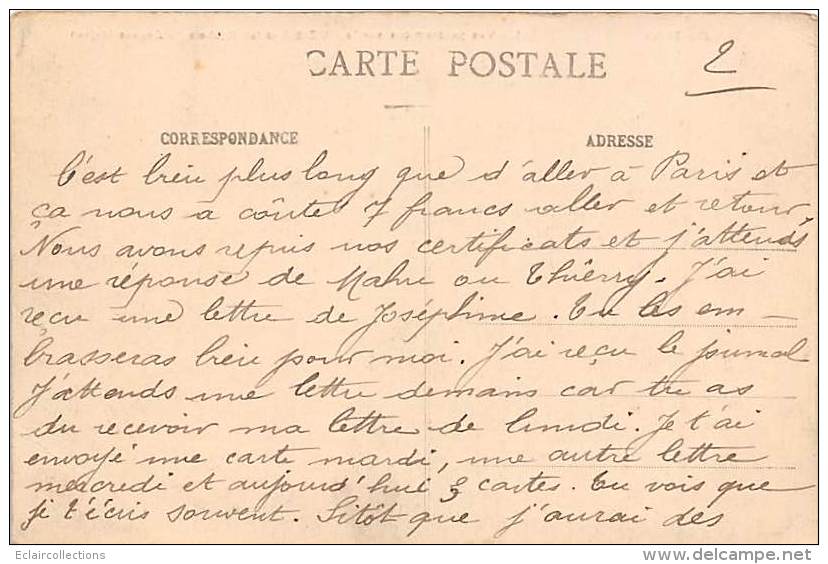 CARTE POSTALE
2
CORRESPONDANCE
ADRESSE
C'est bien plus long que d'aller à Paris et
ça nous a côuté 7 francs aller et retour.
Nous avons repris nos certificats et j'attends
une réponse de Mahu ou Thiêrry. J'ai
reçu une lettre de Joséphine. Tu les em-
brasseras bien pour moi. J'ai reçu le journal
J'attends une lettre demain car tu as
du recevoir ma lettre de lundi. Je t'ai
envoyé une carte mardi, une autre lettre
mercredi et aujourd'hui 2 cartes. Tu vois que
je t'écris souvent. Sitôt que j'aurai des
Eclaircollections
delcampe.net